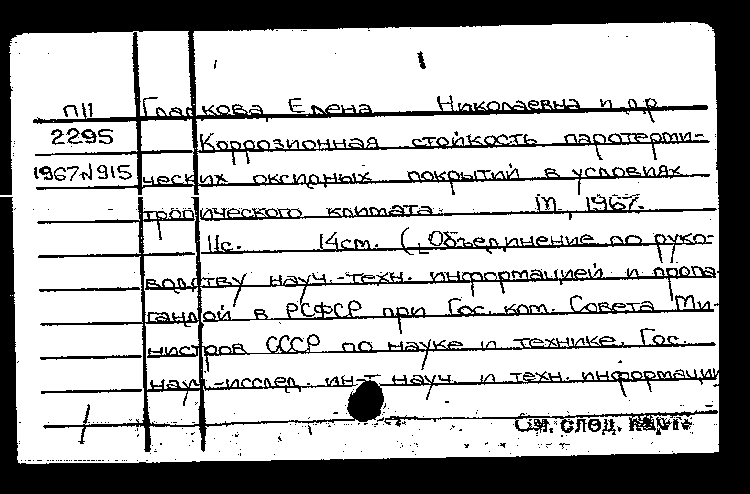 П11 Гладкова Елена Николаевна и др.
2295 Коррозионная стойкость паротерми-
1967№915 ческих оксидных покрытий в условиях
тропического климата. М., 1967.
11с. 14см. (Объединение по руко-
водству науч.-техн. информацией и пропа-
гандой в РСФСР при Гос. ком. Совета Ми-
нистров СССР по науке и технике. Гос.
науч.-исслед. ин-т науч. и техн. информации
См. след. карт.